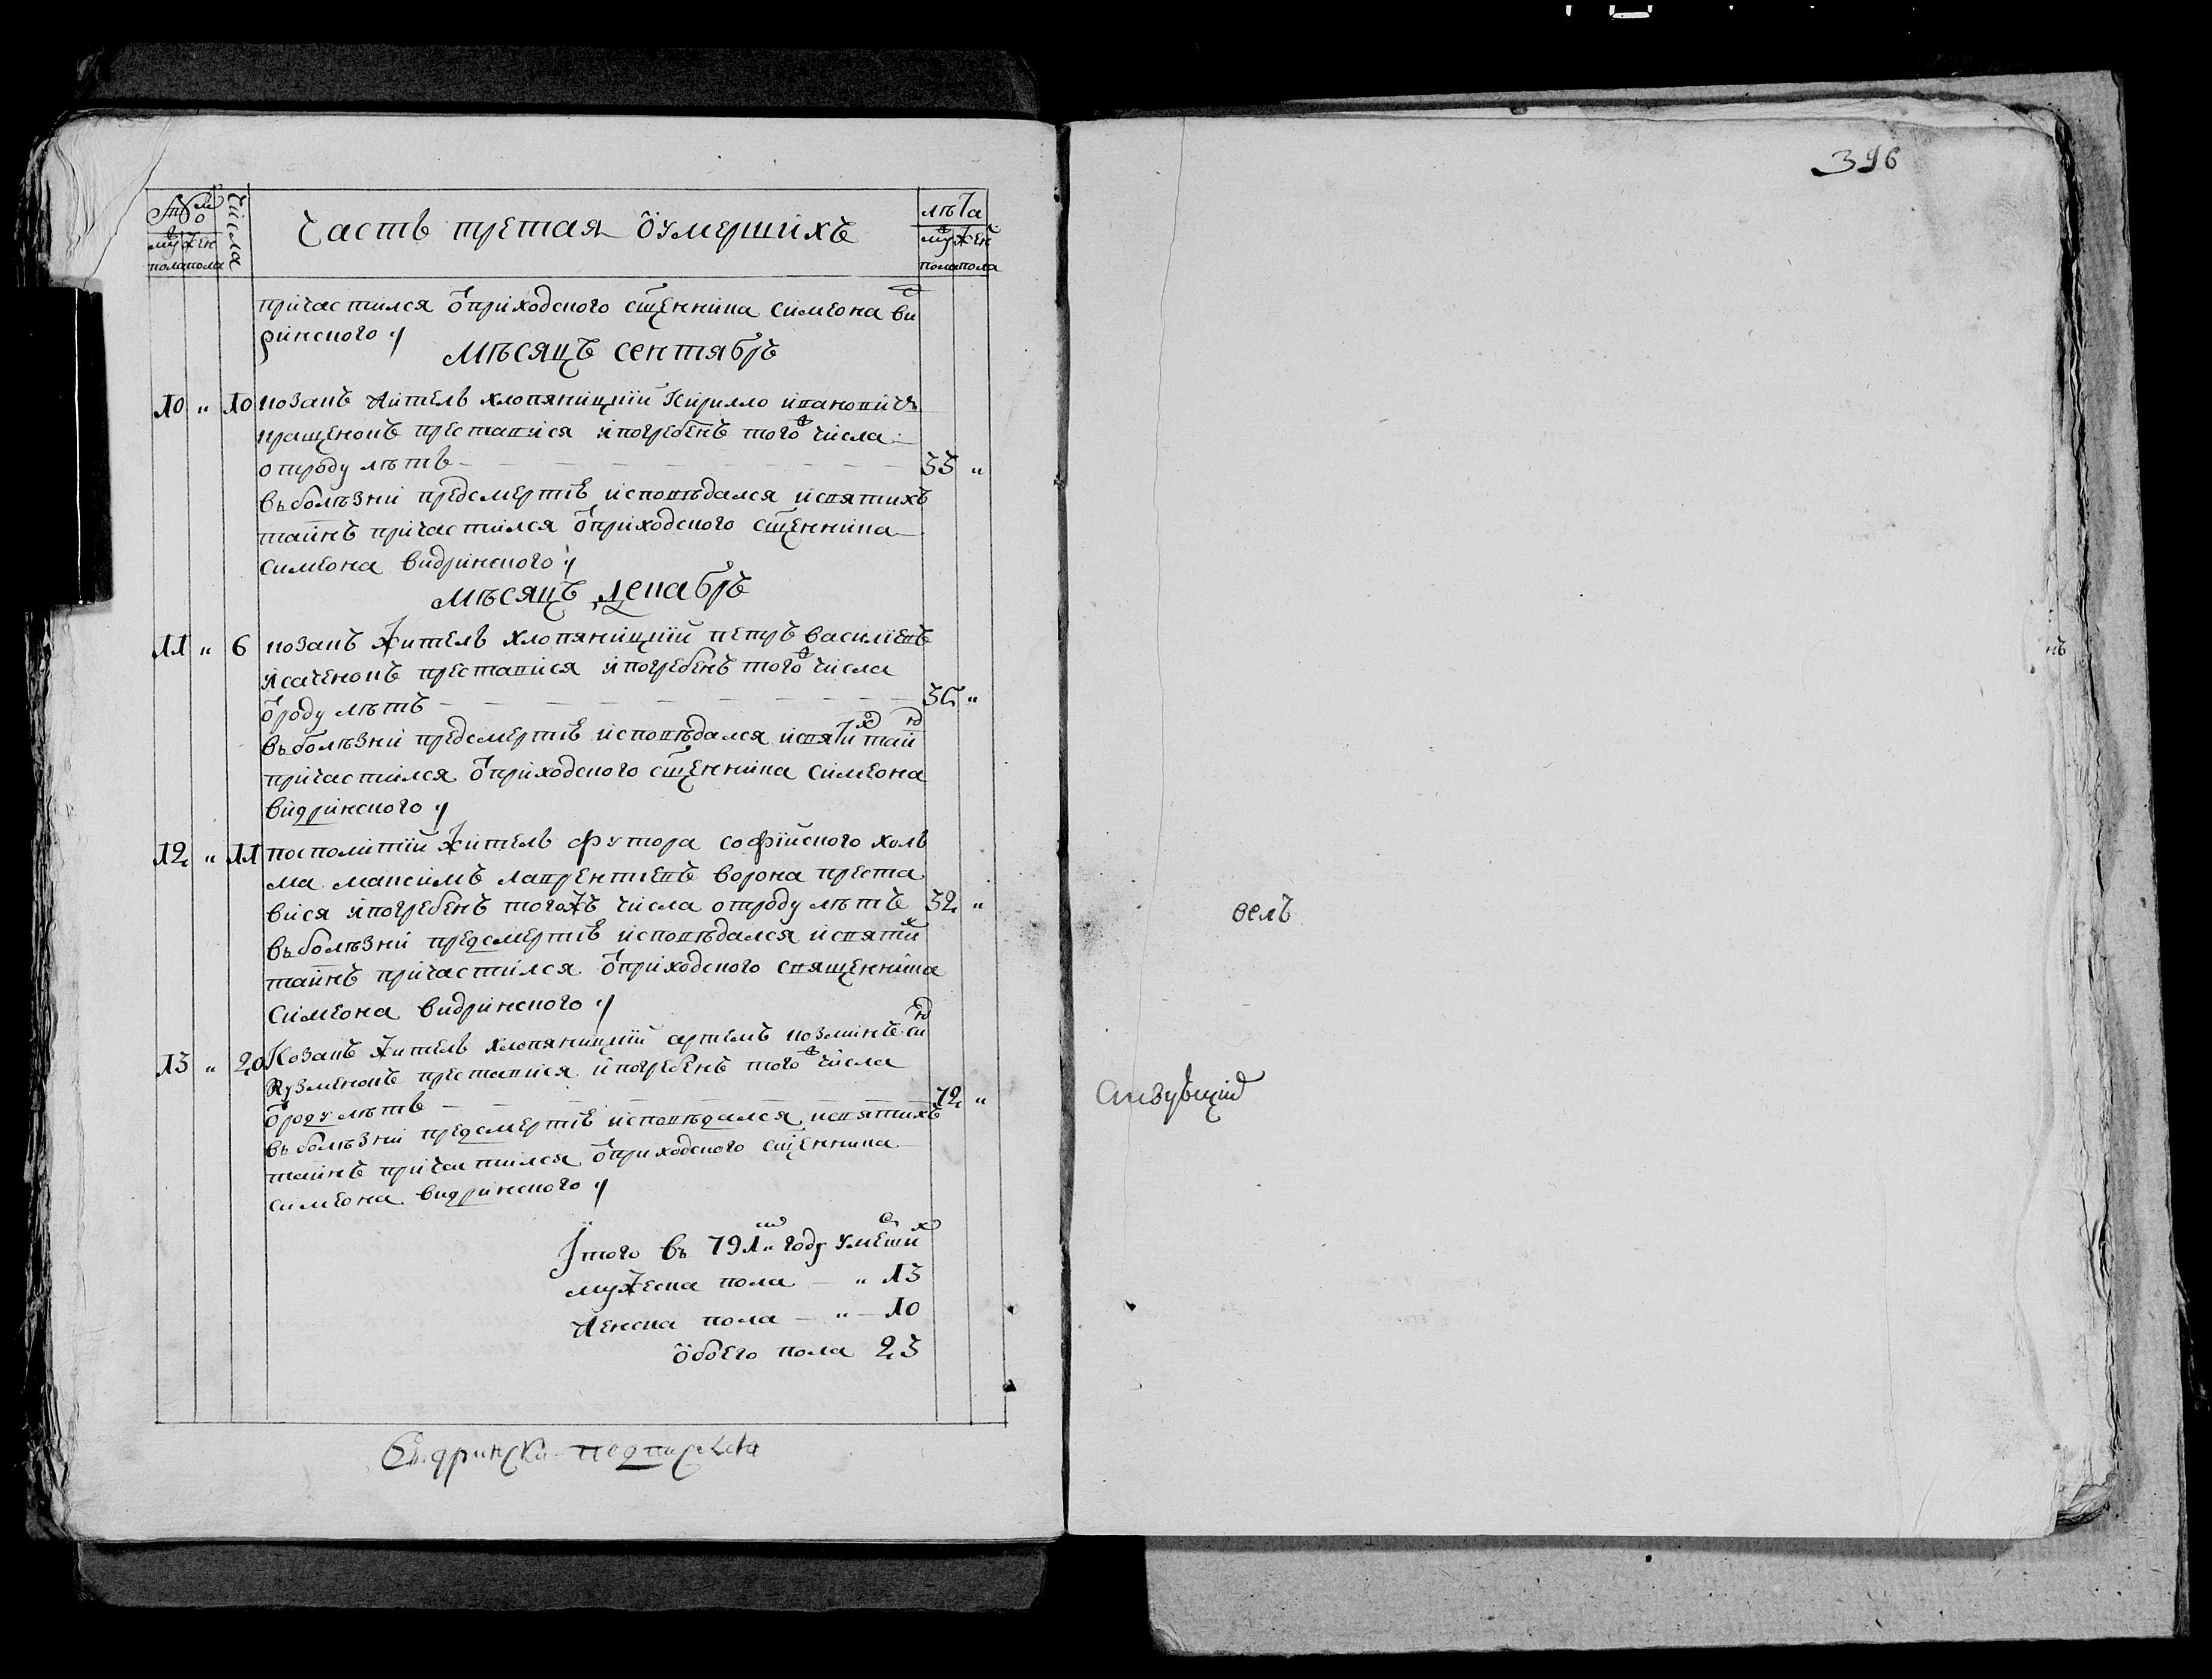 396
Часть третая оумершихъ
Числа
лѣта
муж жен
пола пола
муж жен
пола пола
причастился ѿприходского сщенника симеона ви
ринского
Мѣсяцъ сентябръ
10 " 10 козакъ житель хлопяницкїй Кирилло ивановичъ
кращенокъ преставися и погребенъ тогож числа
отроду лѣтъ 33 "
въ болѣзни предсмертiѣ исповѣдался исвятихъ
таинъ причастился ѿприходского сщенника
симеона видринского
мѣсяцъ декабръ
11 " 6 козакъ житель хлопяницкїй петръ василiевъ
исаченокъ преставися и погребенъ тогож числа
ѿроду лѣтъ "
въ болѣзни предсмертiѣ исповѣдался исвятих таин
причастился ѿприходского сщенника симеона
видринского
12 " 11 посполитїй житель футора софїйского холь
ма максимъ лаврентiевъ ворона преста
вися и погребенъ тогожъ числа отроду лѣтъ 32 "
въ болѣзни предсмертiѣ исповѣдался исвятих
таинъ причастился ѿприходского священника
симеона видринского
13 " 20 Козакъ житель хлопяницкїй артемъ козминъ син
кузменокъ преставися и погребенъ тогож числа
ѿроду лѣтъ 72 "
въ болѣзни предсмертiѣ исповѣдался исвятихъ
таинъ причастился ѿприходского сщенника
симеона видринского
Їтого въ 791м году умерших
мужеска пола " 13
женска пола " 10
обоего пола 23
Видрински подписался
велъ